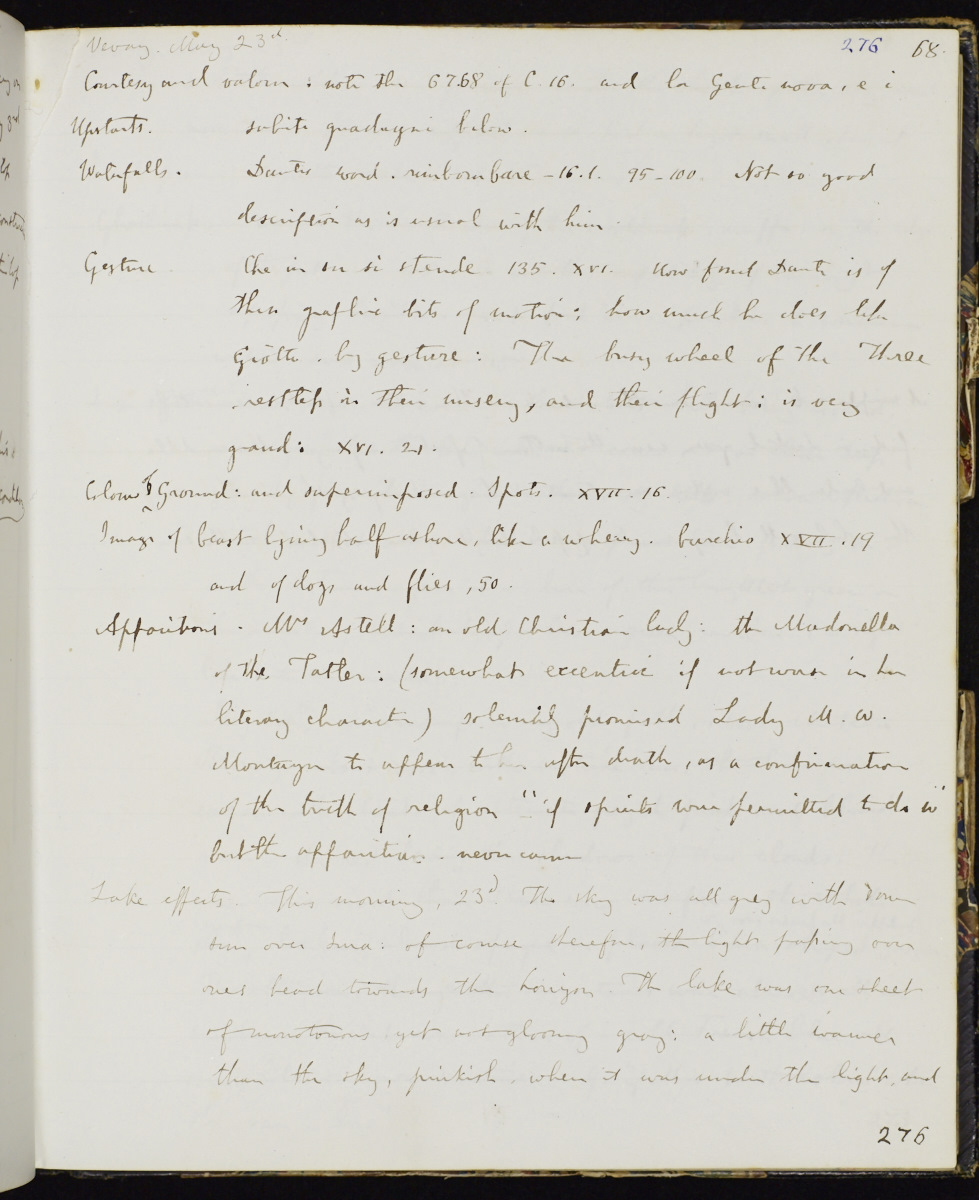 Vevay. May 23d. 276 68.
Courtesy and valour: note the 67.68 of C. 16. and la Gente nova, e i
Upstarts. subiti guadagni below.
Waterfalls. Dantes word. rimbombare - 16.1. 95-100. Not so good
description as is usual with him.
Gesture. Che in su si stende 135. XVI. How fond Dante is of
these graphic bits of motion; how much he does like
Giotto. by gesture: The busy wheel of the Three
restless in their misery, and their flight: is very
grand: XVI. 21.
Colour of Ground: and superimposed. Spots. XVII. 16.
Image of beast lying half ashore, like a wherry. burchio XVII. 19
and of dogs and flies, 50.
Apparitions. Mrs Astell: an old Christian lady: the Madonella
of the Tatler: (somewhat excentric if not worse in her
literary character) solemnly promised Lady M. W.
Montague to appear to her after death, as a confirmation
of the truth of religion "if spirits were permitted to do so"
but the apparition. never came
Lake effects. This morning, 23d. The sky was all grey with
sun over: of course therefore, the light passing over
ones head towards the horizon. The lake was one sheet
of monotonous yet not gloomy gray: a little warmer
than the sky, pinkish. when it was under the light, and
276